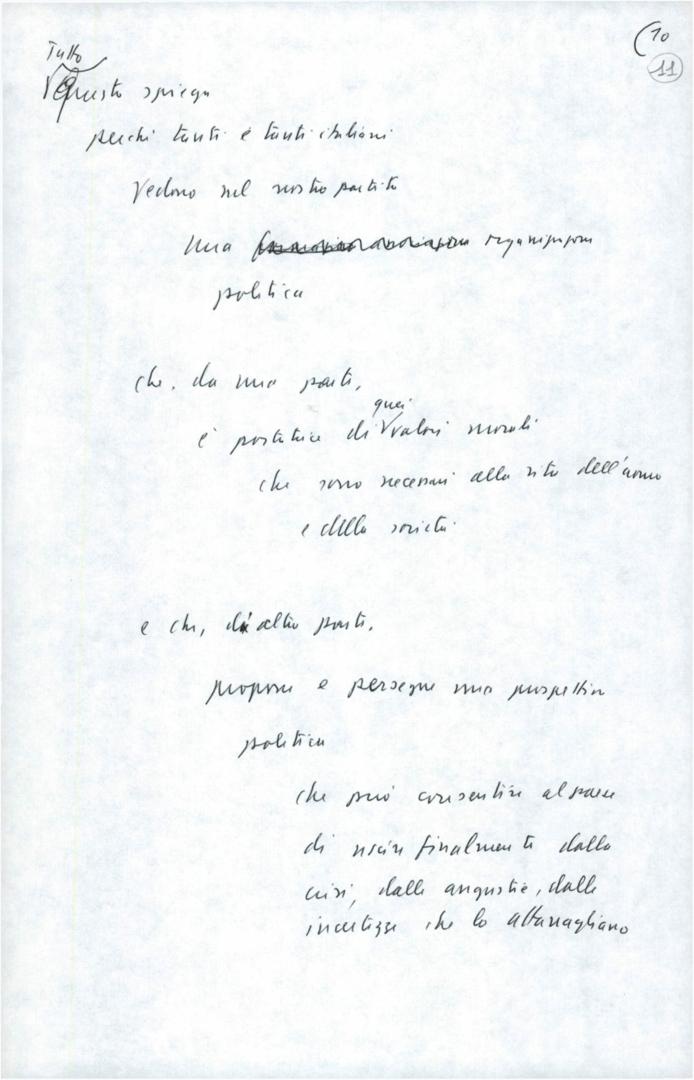 (10
11
Tutto
Questo spiega
perché tanti e tanti italiani
vedono nel nostro partito
una organizzazione
politica
che, da una parte,
quei
è portatrice di valori morali
che sono necessari alla vita dell'uomo
e della società
e che, da altra parte,
propone e persegue una prospettiva
politica
che può consentire al paese
di uscire finalmente dalla
crisi, dalle angustie, dalle
incertezze che lo attanagliano